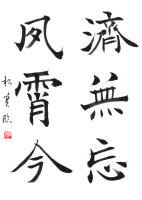 濟無忘
夙霄今